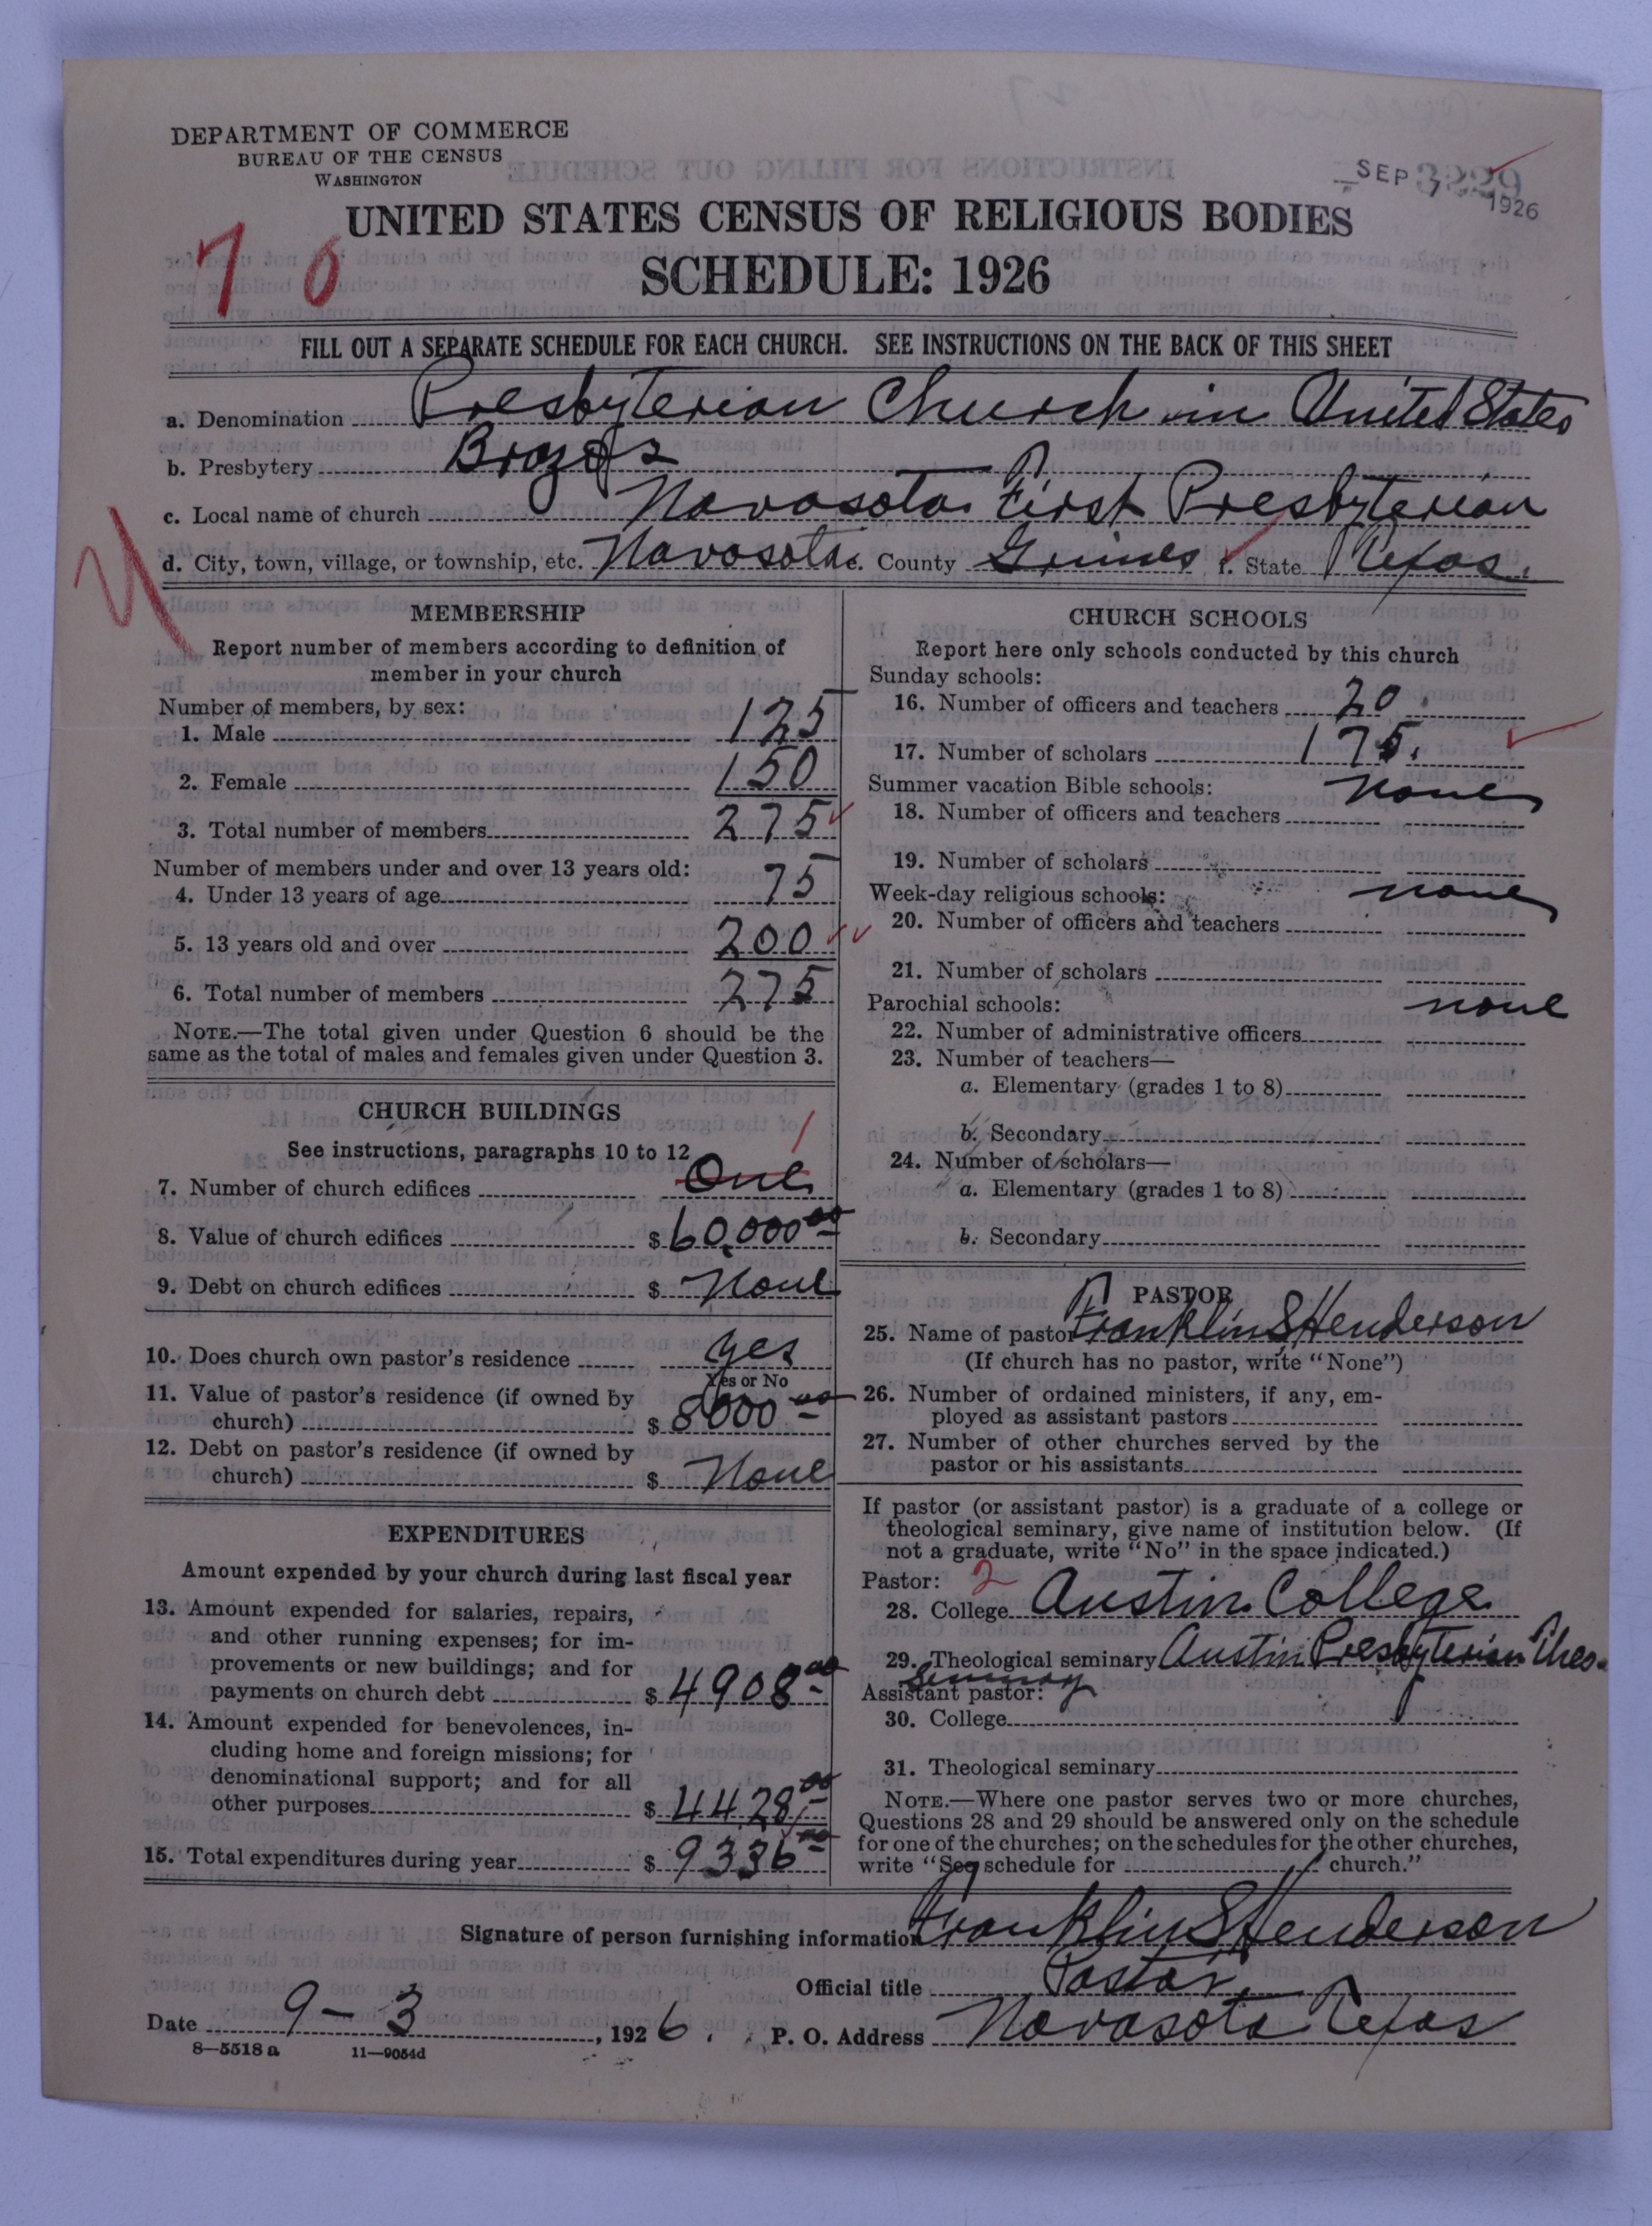 DEPARTMENT OF COMMERCE
BUREAU OF THE CENSUS
WASHINGTON
SEP 7 1926
3229
UNITED STATES CENSUS OF RELIGIOUS BODIES
70
SCHEDULE: 1926
FILL OUT A SEPARATE SCHEDULE FOR EACH CHURCH. SEE INSTRUCTIONS ON THE BACK OF THIS SHEET
a. Denomination Presbyterian Church in United States
b. Presbytery Brazos
c. Local name of church Navasota First Presbyterian
d. City, town, village, or township, etc. Navasota e. County Grimes f. State Texas.
MEMBERSHIP
Report number of members according to definition of
member in your church
Number of members, by sex:
1. Male 125
2. Female 150
3. Total number of members 275
Number of members under and over 13 years old:
4. Under 13 years of age 75
5. 13 years old and over 200
6. Total number of members 275
NOTE.—The total given under Question 6 should be the
same as the total of males and females given under Question 3.
CHURCH BUILDINGS
See instructions, paragraphs 10 to 12
1
7. Number of church edifices One
8. Value of church edifices $60,000 00
9. Debt on church edifices $ None
10. Does church own pastor's residence yes
Yes or No
11. Value of pastor's residence (if owned by
church) $ 8000 00
12. Debt on pastor's residence (if owned by
church) $ None
EXPENDITURES
Amount expended by your church during last fiscal year
13. Amount expended for salaries, repairs,
and other running expenses; for im-
provements or new buildings; and for
payments on church debt $ 4908 00
14. Amount expended for benevolences, in-
cluding home and foreign missions; for
denominational support; and for all
other purposes $ 4428 00
15. Total expenditures during year $ 9336 00
CHURCH SCHOOLS
Report here only schools conducted by this church
Sunday schools:
16. Number of officers and teachers 20
17. Number of scholars 175.
Summer vacation Bible schools: none
18. Number of officers and teachers
19. Number of scholars
Week-day religious schools: none
20. Number of officers and teachers
21. Number of scholars
Parochial schools: none
22. Number of administrative officers
23. Number of teachers—
a. Elementary (grades 1 to 8)
b. Secondary
24. Number of scholars—
a. Elementary (grades 1 to 8)
b. Secondary
PASTOR
25. Name of pastor Franklin S Henderson
(If church has no pastor, write "None")
26. Number of ordained ministers, if any, em-
ployed as assistant pastors
27. Number of other churches served by the
pastor or his assistants
If pastor (or assistant pastor) is a graduate of a college or
theological seminary, give name of institution below. (If
not a graduate, write "No" in the space indicated.)
Pastor: 2
28. College Austin College
29. Theological seminary Austin Presbyterian Theo.
Seminary
Assistant pastor:
30. College
31. Theological seminary
NOTE.—Where one pastor serves two or more churches,
Questions 28 and 29 should be answered only on the schedule
for one of the churches; on the schedules for the other churches,
write "See schedule for church."
Signature of person furnishing information Franklin S Henderson
Official title Pastor
Date 9-3, 1926. P. O. Address Navasota Texas
8—5518 a 11—9054d